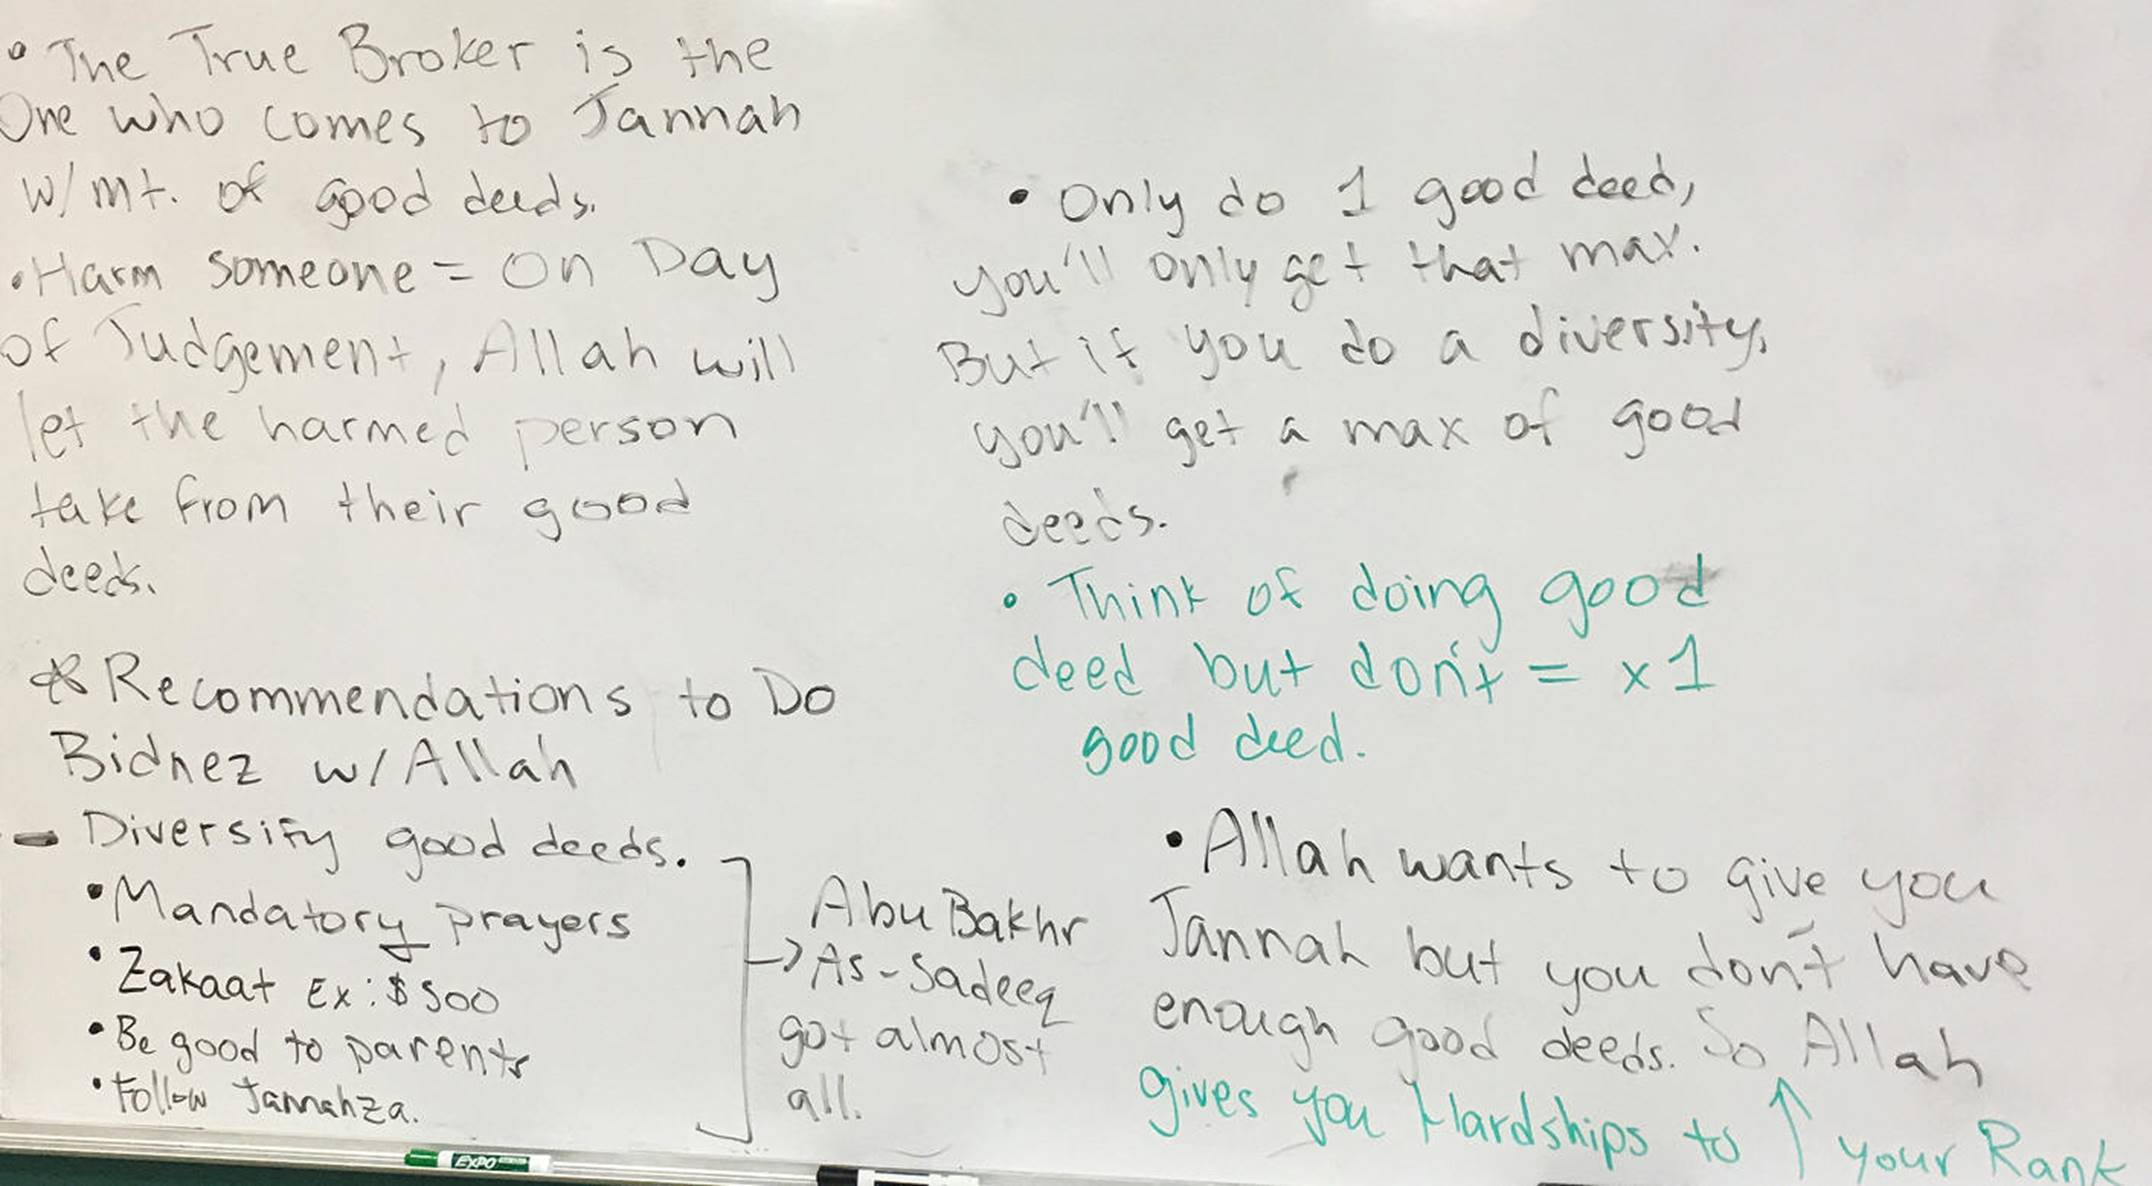 • The True Broker is the
One who comes to Jannah
w/ mt. of good deeds.
• Harm someone = On Day
of Judgement, Allah will
let the harmed person
take from their good
deeds.
* Recommendations to Do
Bidnez w/ Allah
- Diversify good deeds.
• Mandatory prayers
• Zakaat Ex: $500
• Be good to parents
• Follow Jannahza.
Abu Bakhr
→ As-Sadeeq
got almost
all.
• Only do 1 good deed,
you'll only get that max.
But if you do a diversity,
you'll get a max of good
deeds.
• Think of doing good
deed but don't = x1
good deed.
• Allah wants to give you
Jannah but you don't have
enough good deeds. So Allah
gives you Hardships to ↑ your Rank
EXPO